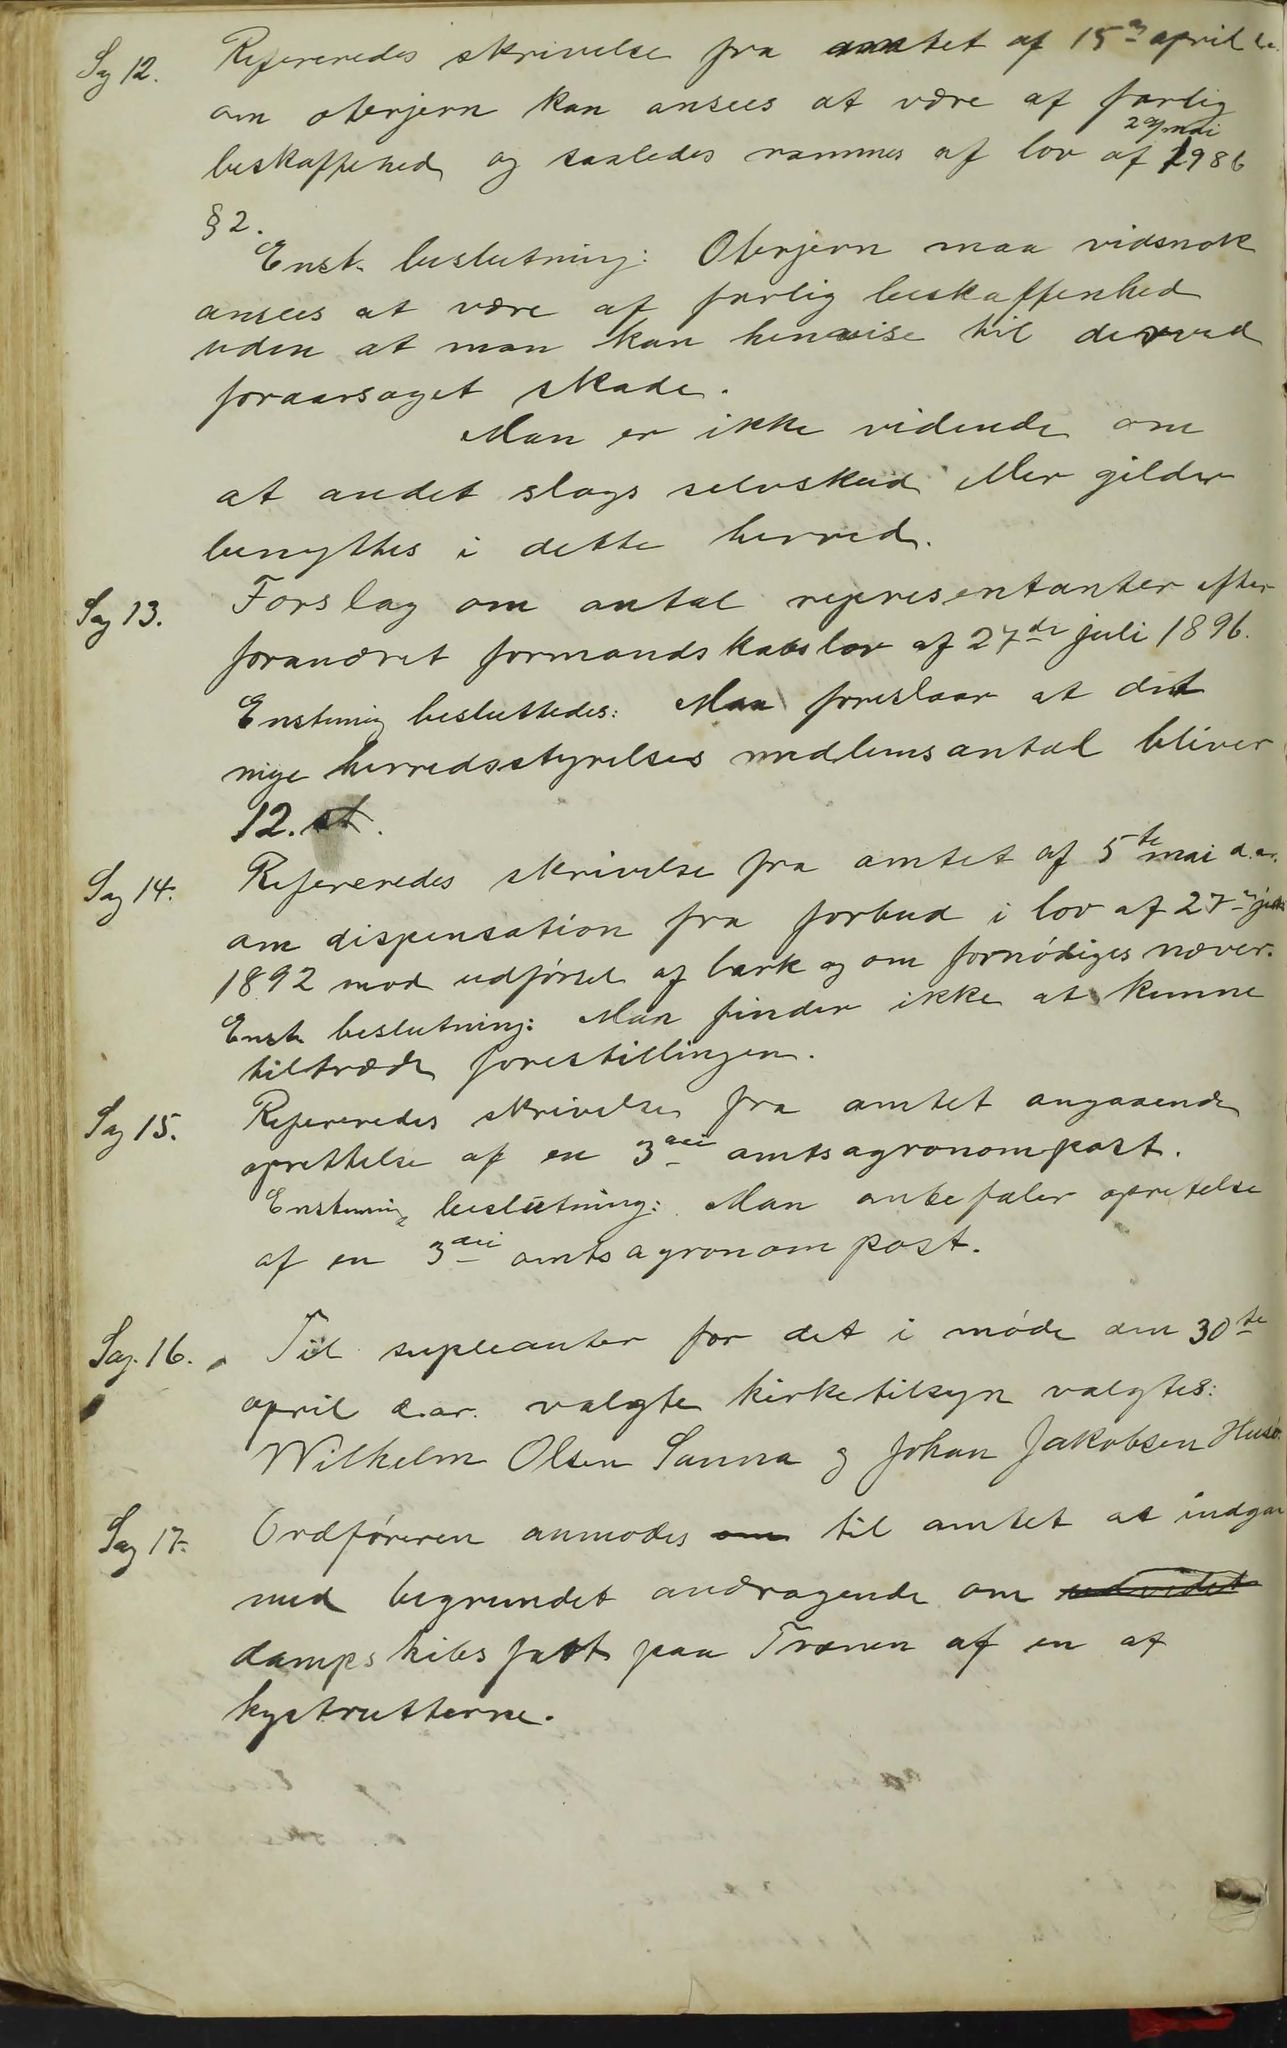 Sag 12. Refereredes skrivelse fra amtet af 15de april
om oterjern kan ansees at være af farlig
29 mai
beskaffenhed og saaledes rammes af lov af 1986
§ 2.
Enst. beslutning: Oterjern maa vidsnok
ansees at være af farlig beskaffenhed
uden at man kan henvise til derved
foraarsaget skade.
Man er ikke vidende om
at andet slags selvskud eller gilder
benyttes i dette herred.
Sag 13. Forslag om antal representanter efter
forandret formandskabslov af 27de juli 1896.
Enstemig besluttedes: Man foreslaar at det
nye herredsstyrelses medlemsantal bliver
12.
Sag 14. Refereredes skrivelse fra amtet af 5te mai d.a.
om dispensation fra forbud i lov af 27de juli
1892 mod udførsel af bark og om fornødiges næver.
Enst. beslutning: Man finder ikke at kunne
tiltræde forestillingen.
Sag 15. Refereredes skrivelse fra amtet angaaende
oprettelse af en 3die amtsagronompost.
Enstemig beslutning: Man anbefaler opretelse
af en 3die amtsagronompost.
Sag. 16. Til supleanter for det i møde den 30te
april d.ar. valgte kirketilsyn valgtes:
Wilhelm Olsen Sanna og Johan Jakobsen Husø.
Sag 17. Ordføreren anmodes om til amtet at indgaa
med begrundet andragende om udvidet
dampskibsfart paa Trænen af en af
kystrutterne.